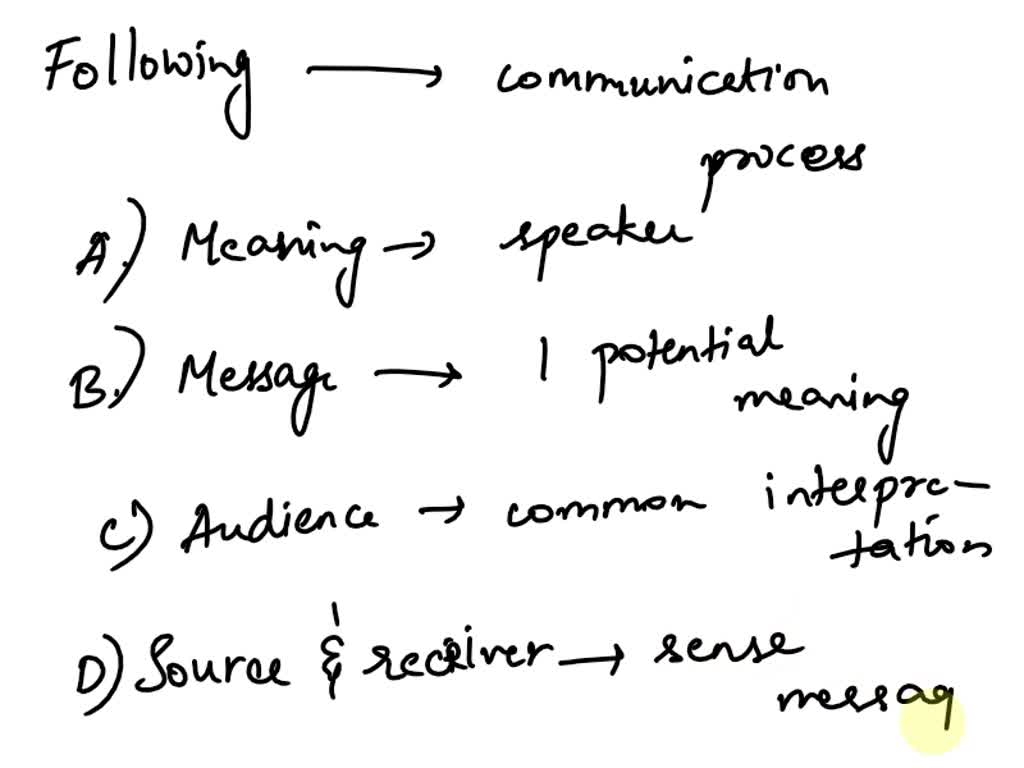 Following → communication
process
A.) Meaning → speaker
B.) Message → 1 potential
meaning
C) Audience → common interpre-
tation
D) Source & receiver → sense
messag